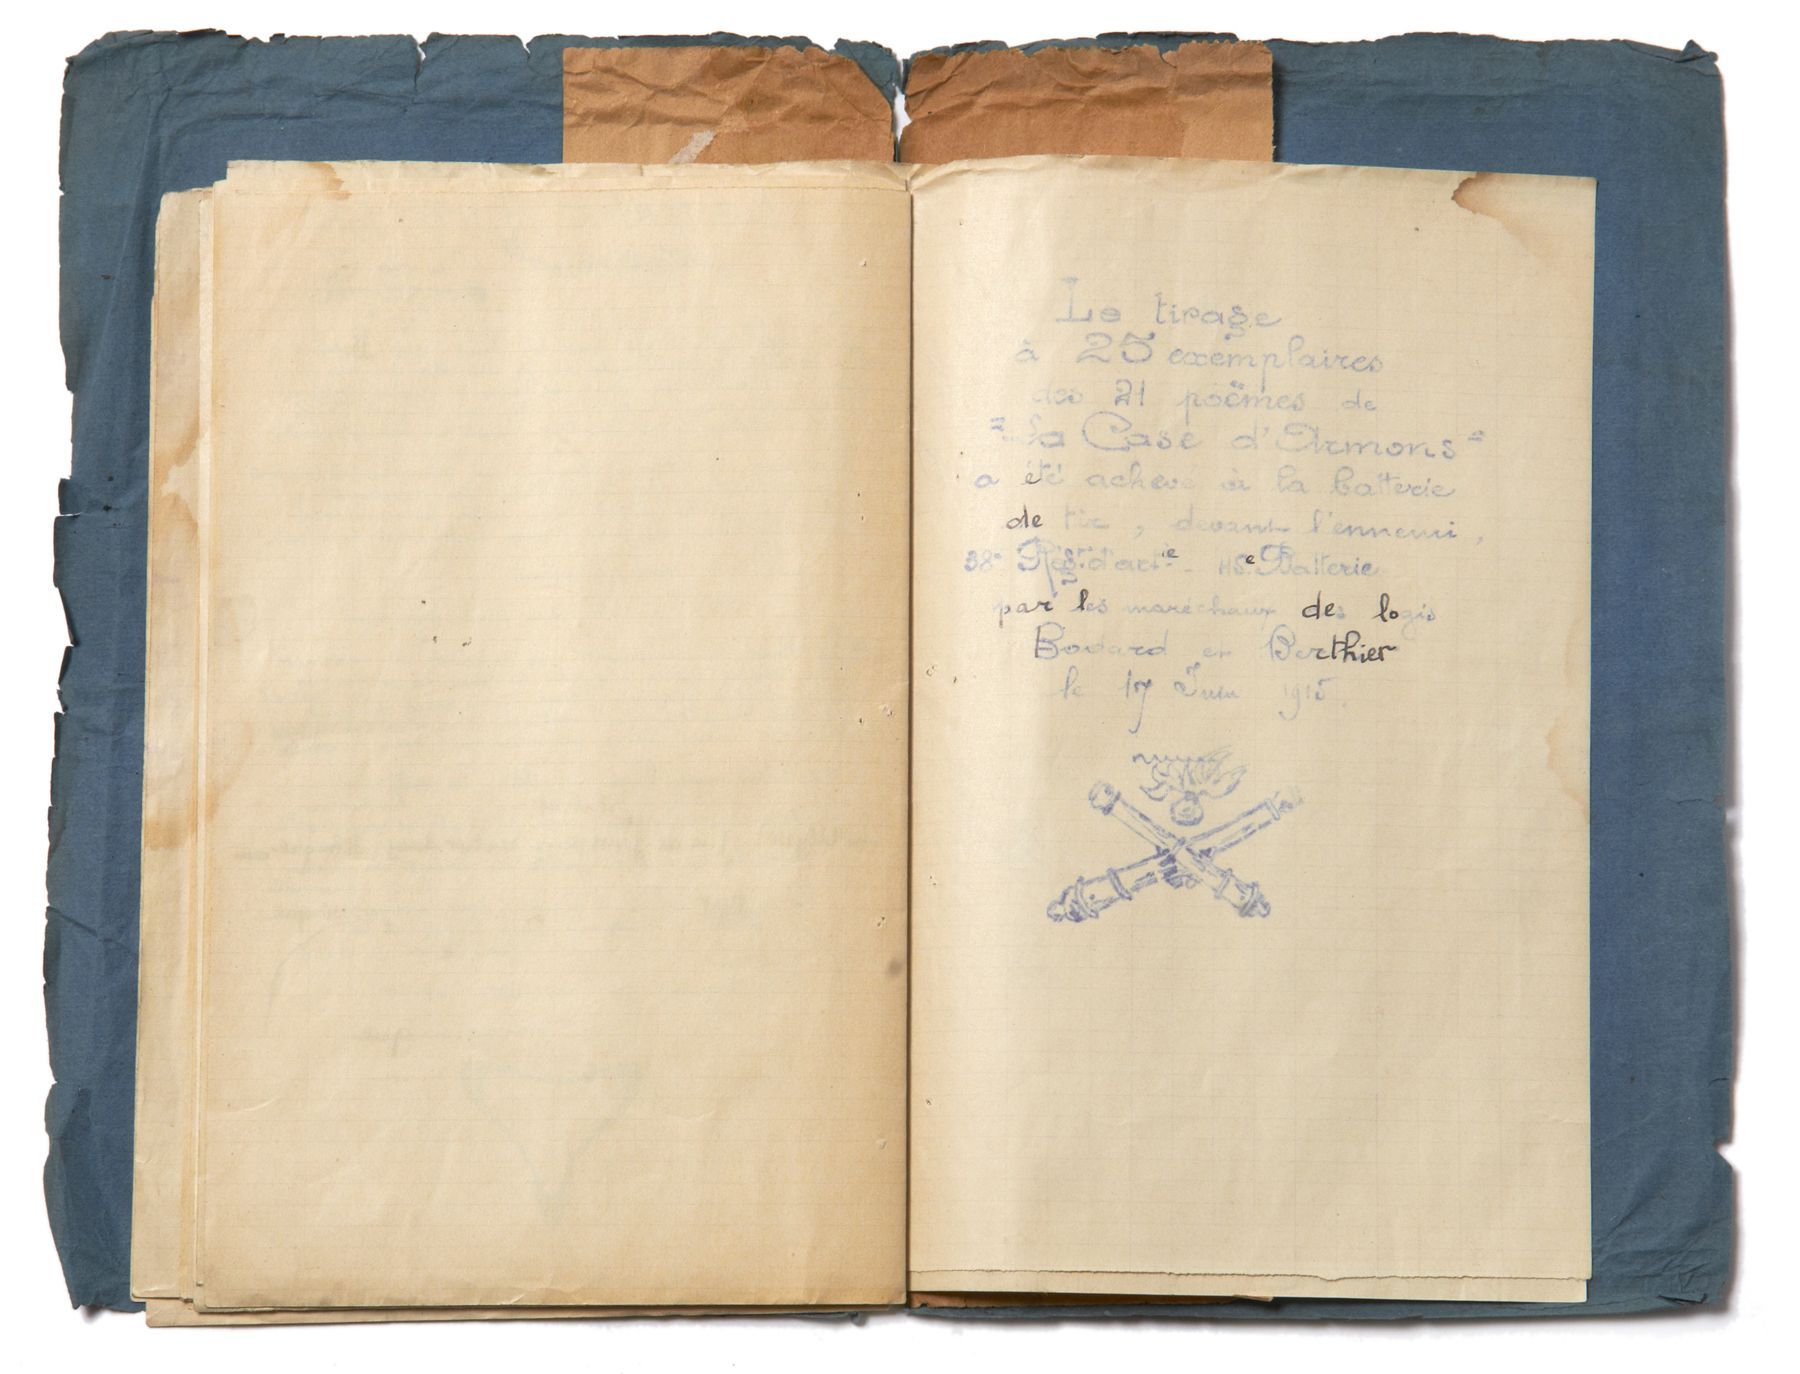 Le tirage
à 25 exemplaires
des 21 poëmes de
"la Case d'Armons"
a été achevé à la batterie
de tir, devant l'ennemi,
38e Régt d'artie - 45e Batterie
par les maréchaux des logis
Bodard et Berthier
le 17 Juin 1915.